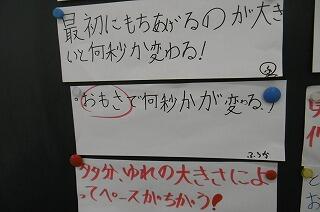 最初にもちあげるのが大き
いと何秒か変わる!
。おもさで何秒かが変わる!
タタ分、ゆれの大きさによ
ってペースがちがう!